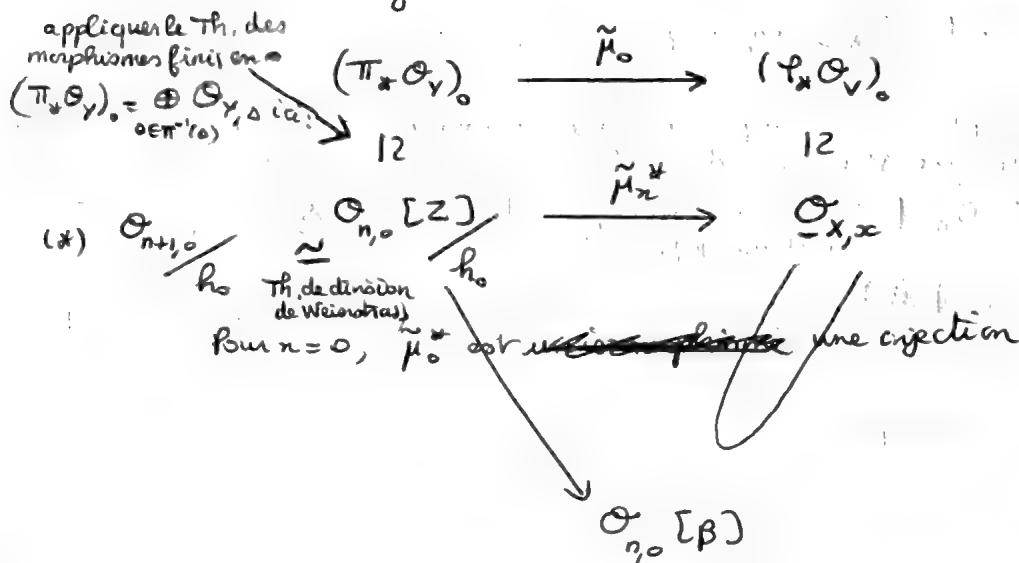 appliquer le Th. des
morphismes finis en o
(π_* O_Y)_o = ⊕ O_{Y,s} ici:
s ∈ π^{-1}(o)
(π_* O_Y)_o → μ̃_o → (φ_* O_V)_o
12 12
(*) O_{n+1,o} / h_o ≃ O_{n,o}[Z] / h_o → μ̃_x^* → O_{X,x}
Th. de division
de Weierstrass
Pour x = 0, μ̃_o^* est une injection
O_{n,o}[β]